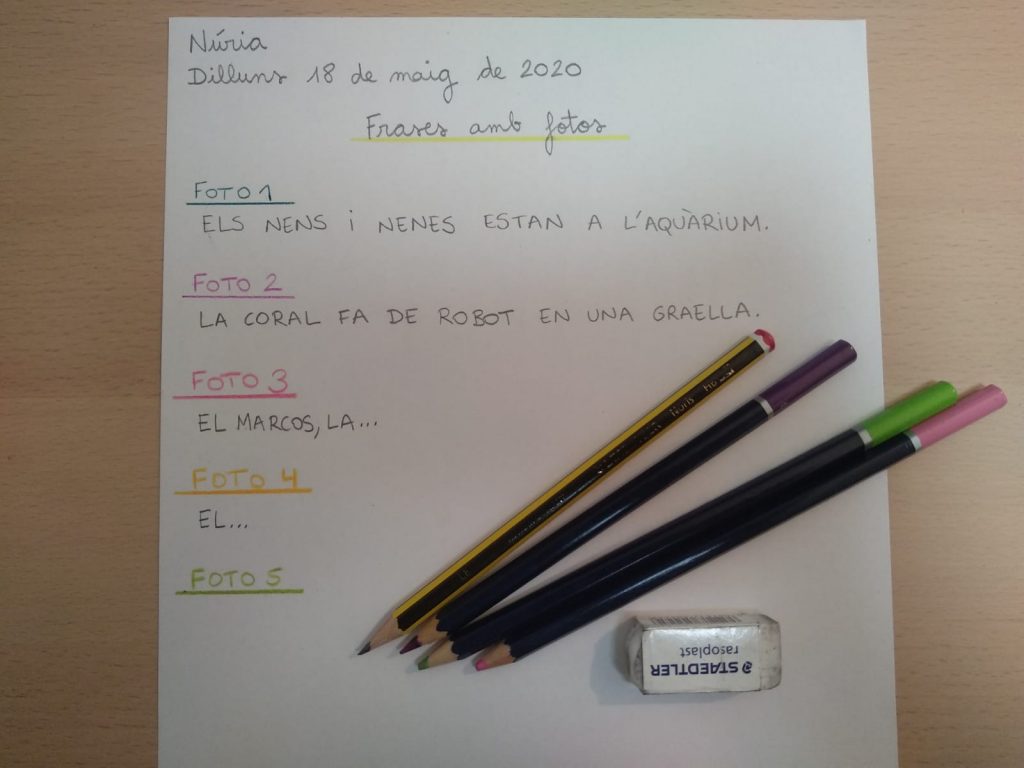 Núria
Dilluns 18 de maig de 2020
Frases amb fotos
FOTO 1
ELS NENS i NENES ESTAN A L'AQUÀRIUM.
FOTO 2
LA CORAL FA DE ROBOT EN UNA GRAELLA.
FOTO 3
EL MARCOS, LA...
FOTO 4
EL...
FOTO 5
Noris HB
STAEDTLER
rasoplast